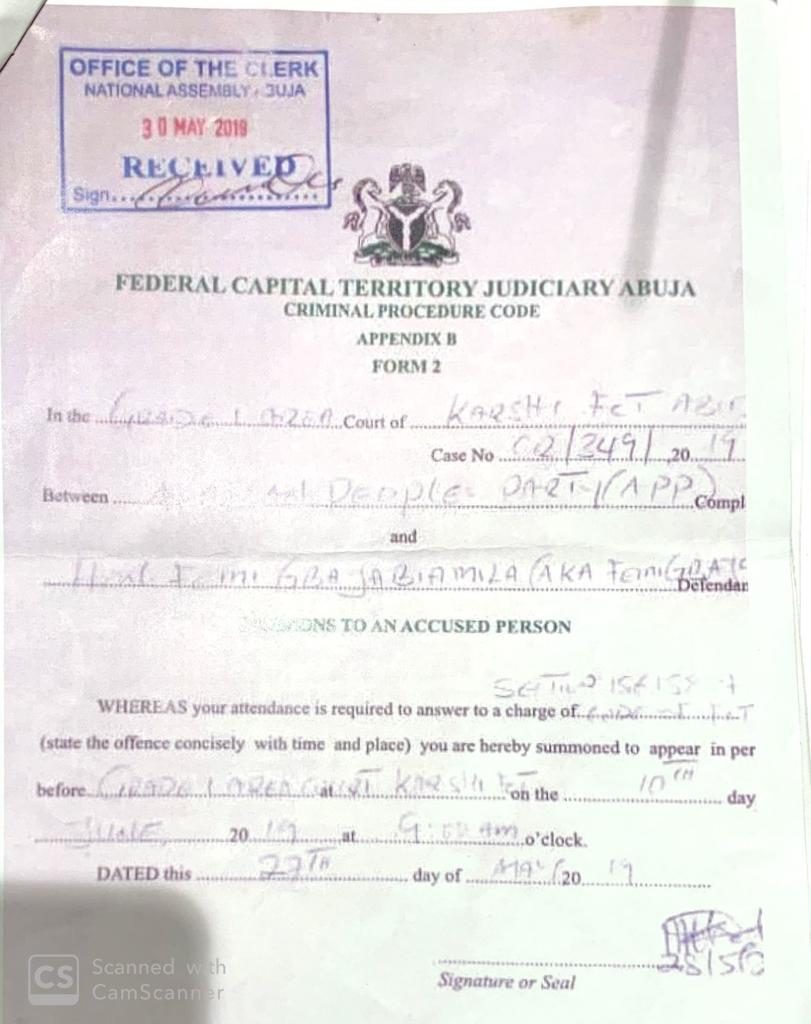 OFFICE OF THE CLERK
NATIONAL ASSEMBLY, BUJA
30 MAY 2019
RECEIVED
Sign
FEDERAL CAPITAL TERRITORY JUDICIARY ABUJA
CRIMINAL PROCEDURE CODE
APPENDIX B
FORM 2
In the GRADE 1 AREA Court of KARSHI FCT
Case No CR/349/ 20 19
Between PEOPLES PARTY (APP) Compl
and
Femi GBAJABIAMILA (AKA Femi Defendan
TO AN ACCUSED PERSON
WHEREAS your attendance is required to answer to a charge of
(state the offence concisely with time and place) you are hereby summoned to appear in per
before GRADE 1 AREA COURT at KARSHI FCT on the 10TH day
JUNE, 20 19 at 9:00 am o'clock.
DATED this 27TH day of MAY 20 19
25/5/
Signature or Seal
CS Scanned with
CamScanner